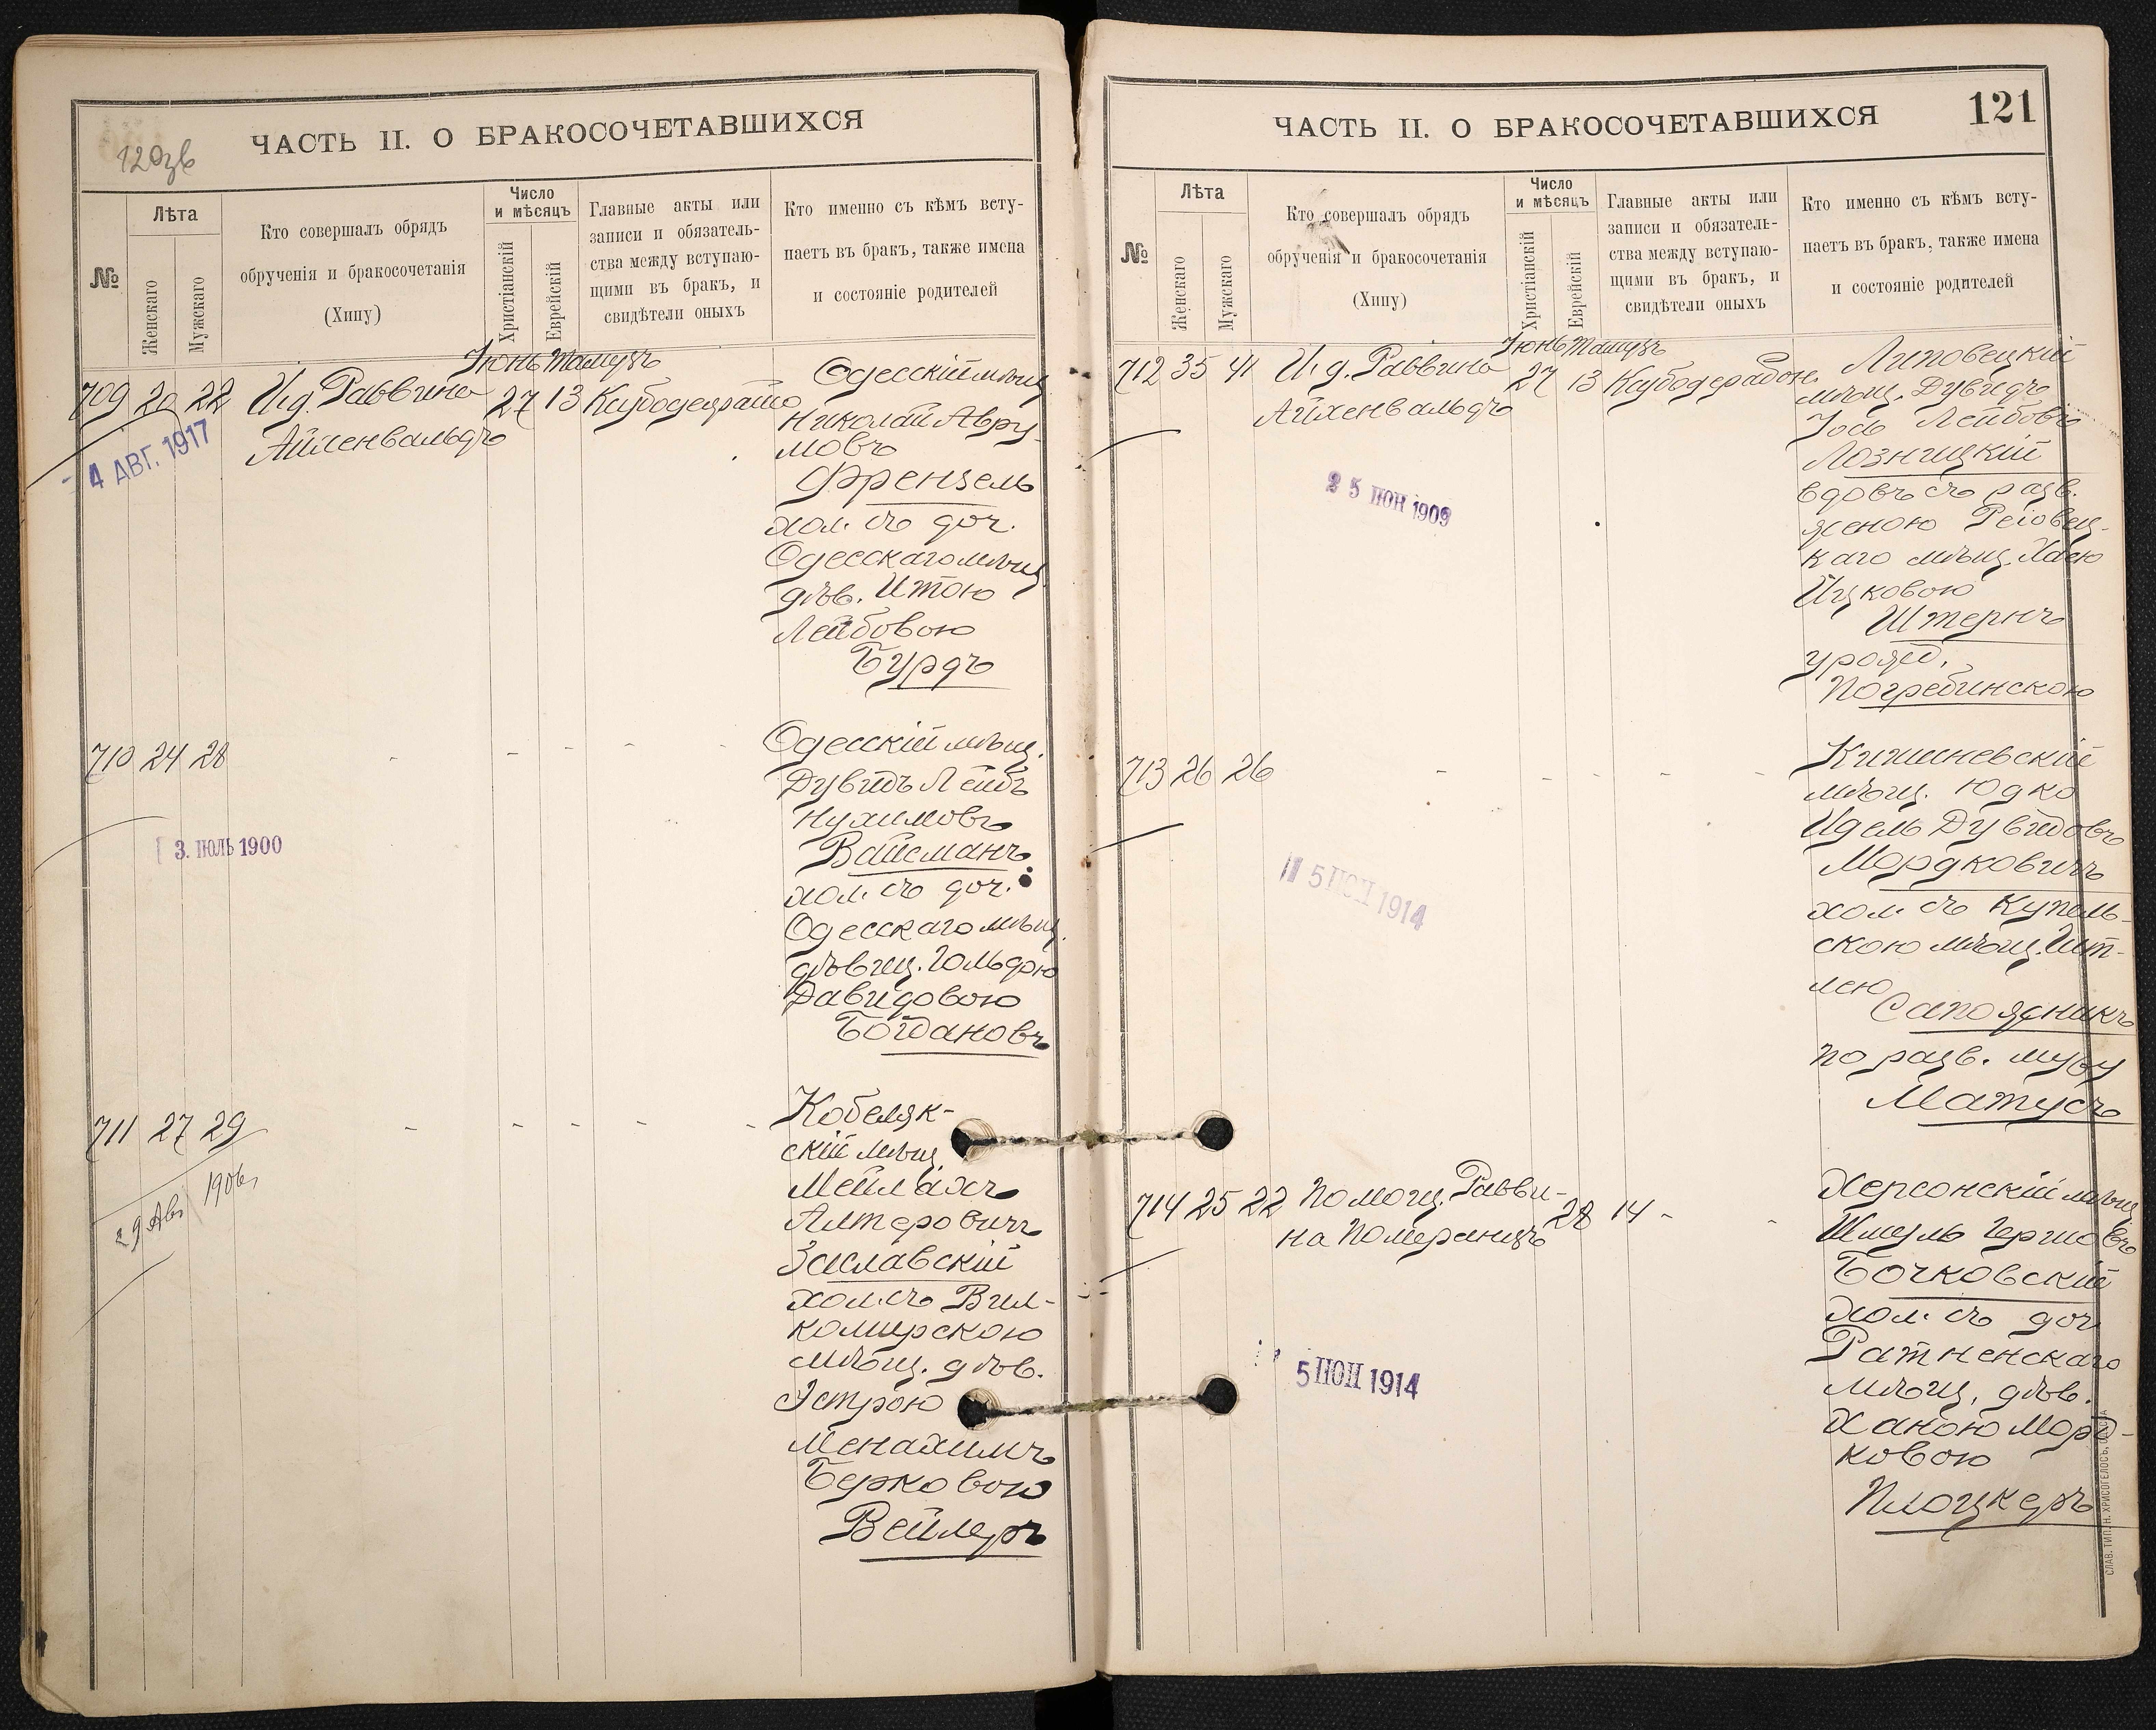 ЧАСТЬ II. О БРАКОСОЧЕТАВШИХСЯ
120 зв
№
Лѣта
Женскаго
Мужскаго
Кто совершалъ обрядъ
обрученія и бракосочетанія
(Хипу)
Число
и мѣсяцъ
Христіанскій
Еврейскій
Главные акты или
записи и обязатель-
ства между вступаю-
щими въ бракъ, и
свидѣтели оныхъ
Кто именно съ кѣмъ всту-
паетъ въ бракъ, также имена
и состояніе родителей
Іюнь Тамузъ
709 20 22 И.д. Раввина 27 13
Айхенвальдъ
- 4 АВГ. 1917
Одесскій мѣщ
Николай Авру-
мовъ
Френцель
хол. съ доч.
Одесскаго мѣщ
дѣв. Итою
Лейбовою
Бурдъ
710 24 28 - - - - -
3. ІЮЛЬ 1900
Одесскій мѣщ.
Дувидъ Лейбъ
Нухимовъ
Вайсманъ
хол. съ доч.
Одесскаго мѣщ.
дѣвиц. Гольдою
Давидовою
Богдановъ
711 27 29 - - - - -
29 Авг 1906
Кобеляк-
скій мѣщ.
Мейлахъ
Алтеровичъ
Заславскій
хол. съ Вил-
комирскою
мѣщ. дѣв.
Эстрою
Менахимъ
Берковою
Вейлеръ
ЧАСТЬ II. О БРАКОСОЧЕТАВШИХСЯ
121
№
Лѣта
Женскаго
Мужскаго
Кто совершалъ обрядъ
обрученія и бракосочетанія
(Хипу)
Число
и мѣсяцъ
Христіанскій
Еврейскій
Главные акты или
записи и обязатель-
ства между вступаю-
щими въ бракъ, и
свидѣтели оныхъ
Кто именно съ кѣмъ всту-
паетъ въ бракъ, также имена
и состояніе родителей
Іюнь Тамузъ
712 35 41 И.д. Раввина 27 13
Айхенвальдъ
25 ІЮН 1909
Липовецкій
мѣщ. Дувидъ
Іось Лейбовъ
Лозницкій
вдовъ съ разв.
женою
каго мѣщ. Хаею
Ицковою
Штернъ
урожд.
Погребинскою
713 26 26 - - - - -
5 ІЮН 1914
Кишиневскій
мѣщ. Юдко
Идель Дувидовъ
Мордковичъ
хол. съ Купель-
скою мѣщ. Шт-
лею
Сапожникъ
по разв. мужу
Матусъ
714 25 22 Помощ. Равви- 28 14 - -
на Померанцъ
5 ІЮН 1914
Херсонскій мѣщ
Шмуль Гершовъ
Бочковскій
хол. съ доч
Ратненскаго
мѣщ. дѣв.
Ханою Морд-
ковою
Плоцкеръ
СЛАВ. ТИП. Н. ХРИСОГЕЛОСЪ, ОДЕССА